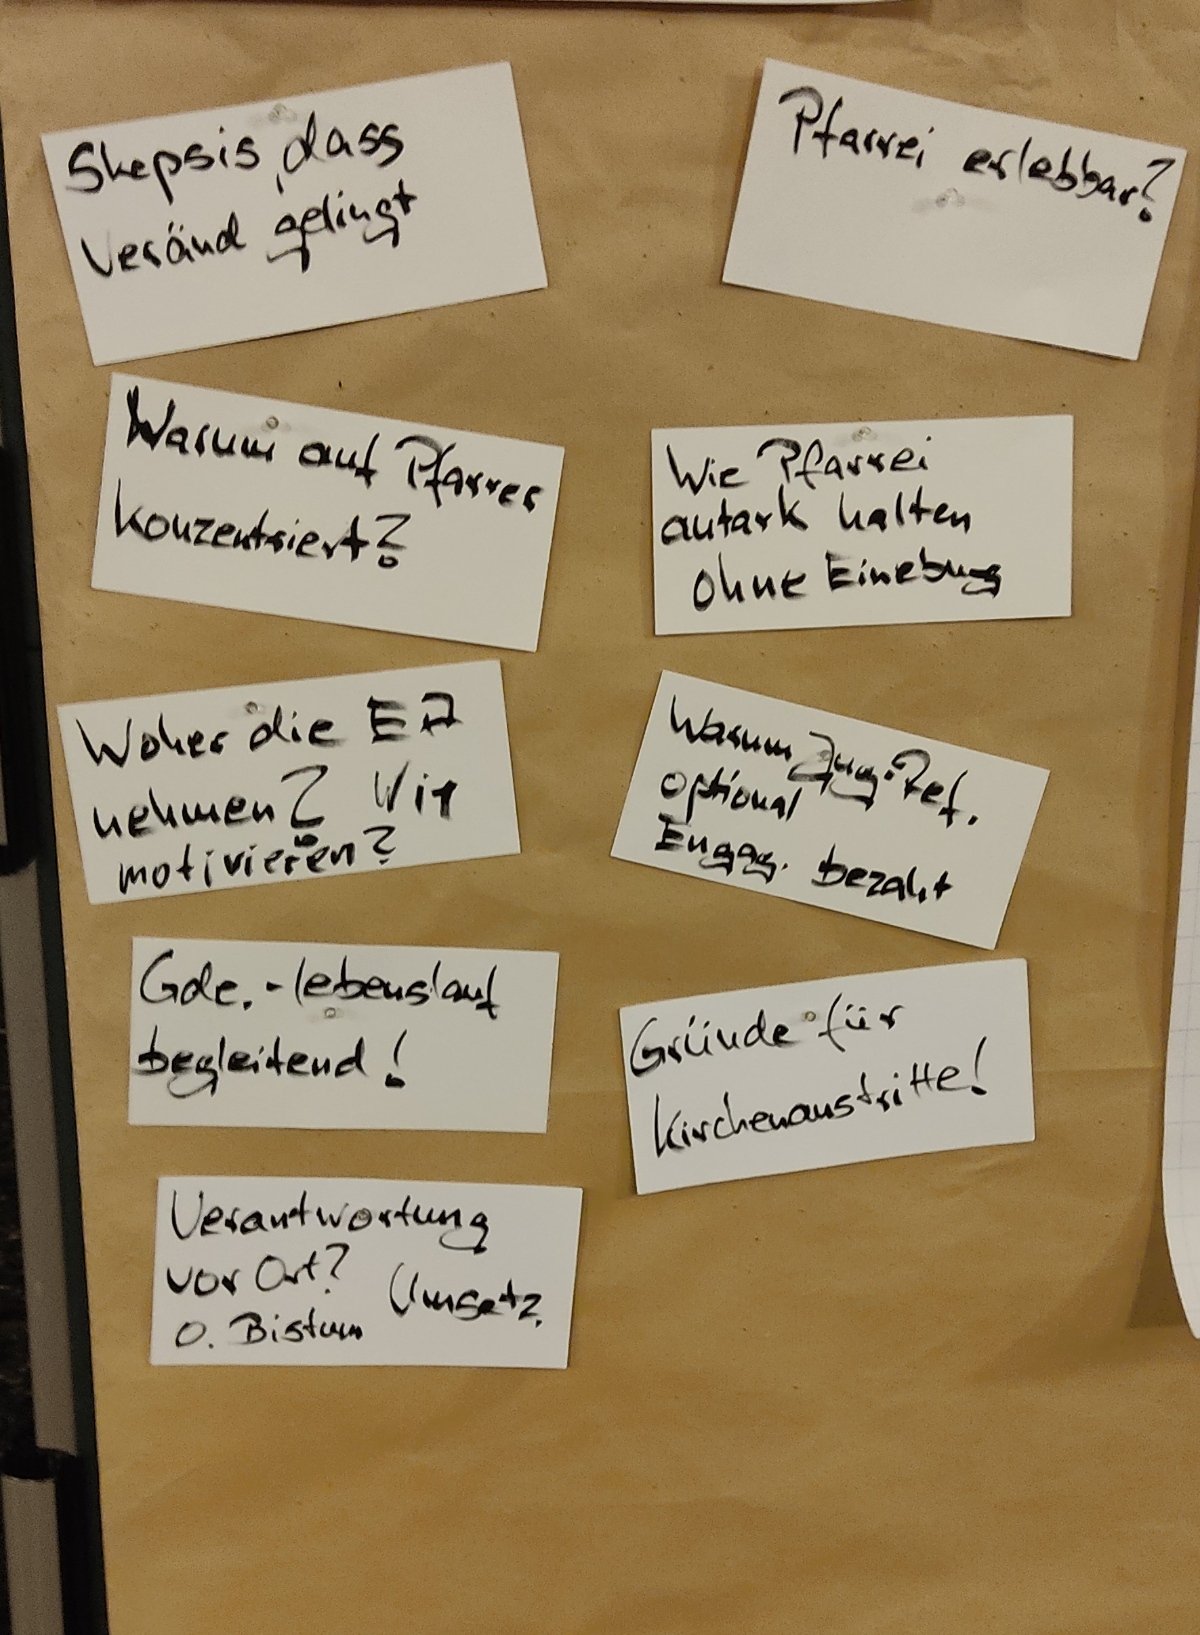 Skepsis, dass
Veränd gelingt
Pfarrei erlebbar?
Warum auf Pfarrer
konzentriert?
Wie Pfarrei
autark halten
ohne Einebung
Woher die EA
nehmen? Wie
motivieren?
Warum Jug.-Ref.
optional
Engag. bezahlt
Gde.-lebenslauf
begleitend!
Gründe für
Kirchenaustritte!
Verantwortung
vor Ort?
Umsetz.
o. Bistum